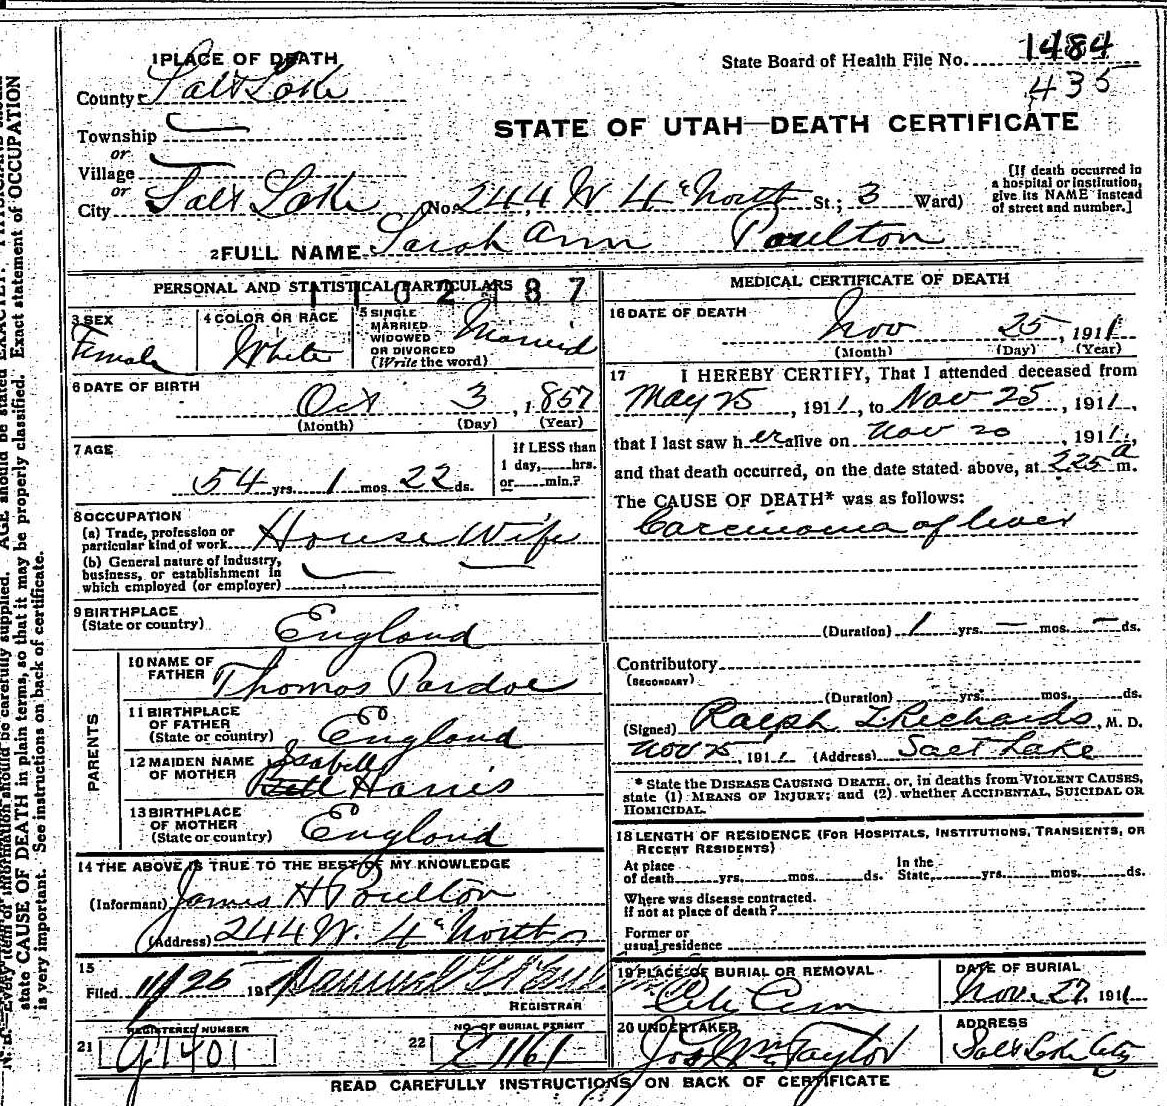 1 PLACE OF DEATH
State Board of Health File No. 1484
435
County Salt Lake
STATE OF UTAH—DEATH CERTIFICATE
Township
or
Village
or
City Salt Lake (No. 244 W 4" North St.; 3 Ward)
[If death occurred in
a hospital or institution,
give its NAME instead
of street and number.]
2 FULL NAME Sarah Ann Poulton
PERSONAL AND STATISTICAL PARTICULARS
1102187
3 SEX
Female
4 COLOR OR RACE
White
5 SINGLE
MARRIED
WIDOWED
OR DIVORCED
(Write the word)
Married
6 DATE OF BIRTH
Oct 3, 1857
(Month) (Day) (Year)
7 AGE
54 yrs. 1 mos. 22 ds.
If LESS than
1 day, hrs.
or min.?
8 OCCUPATION
(a) Trade, profession or
particular kind of work House Wife
(b) General nature of industry,
business, or establishment in
which employed (or employer)
9 BIRTHPLACE
(State or country) England
PARENTS
10 NAME OF
FATHER Thomas Pardoe
11 BIRTHPLACE
OF FATHER
(State or country) England
12 MAIDEN NAME
OF MOTHER Isabell
Harris
13 BIRTHPLACE
OF MOTHER
(State or country) England
14 THE ABOVE IS TRUE TO THE BEST OF MY KNOWLEDGE
(Informant) James H Poulton
(Address) 244 W. 4" North
15
Filed 11/25 191
REGISTRAR
REGISTERED NUMBER
21 G1401
NO. OF BURIAL PERMIT
22 E1161
MEDICAL CERTIFICATE OF DEATH
16 DATE OF DEATH
Nov 25, 1911
(Month) (Day) (Year)
17 I HEREBY CERTIFY, That I attended deceased from
May 25, 1911, to Nov 25, 1911,
that I last saw her alive on Nov 20, 1911,
and that death occurred, on the date stated above, at 225 a m.
The CAUSE OF DEATH* was as follows:
Carcinoma of liver
(Duration) 1 yrs. — mos. — ds.
Contributory
(SECONDARY)
(Duration) yrs. mos. ds.
(Signed) Ralph T. Richards, M. D.
Nov 25, 1911 (Address) Salt Lake
* State the DISEASE CAUSING DEATH, or, in deaths from VIOLENT CAUSES,
state (1) MEANS OF INJURY; and (2) whether ACCIDENTAL, SUICIDAL OR
HOMICIDAL.
18 LENGTH OF RESIDENCE (FOR HOSPITALS, INSTITUTIONS, TRANSIENTS, OR
RECENT RESIDENTS)
At place
of death yrs. mos. ds.
In the
State, yrs. mos. ds.
Where was disease contracted.
if not at place of death?
Former or
usual residence
19 PLACE OF BURIAL OR REMOVAL
City Cem
DATE OF BURIAL
Nov. 27, 1911
20 UNDERTAKER
Jos. Wm. Taylor
ADDRESS
Salt Lake City
READ CAREFULLY INSTRUCTIONS ON BACK OF CERTIFICATE
N. B.—Every item of information should be carefully supplied. AGE should be stated EXACTLY. PHYSICIANS should
state CAUSE OF DEATH in plain terms, so that it may be properly classified. Exact statement of OCCUPATION
is very important. See instructions on back of certificate.